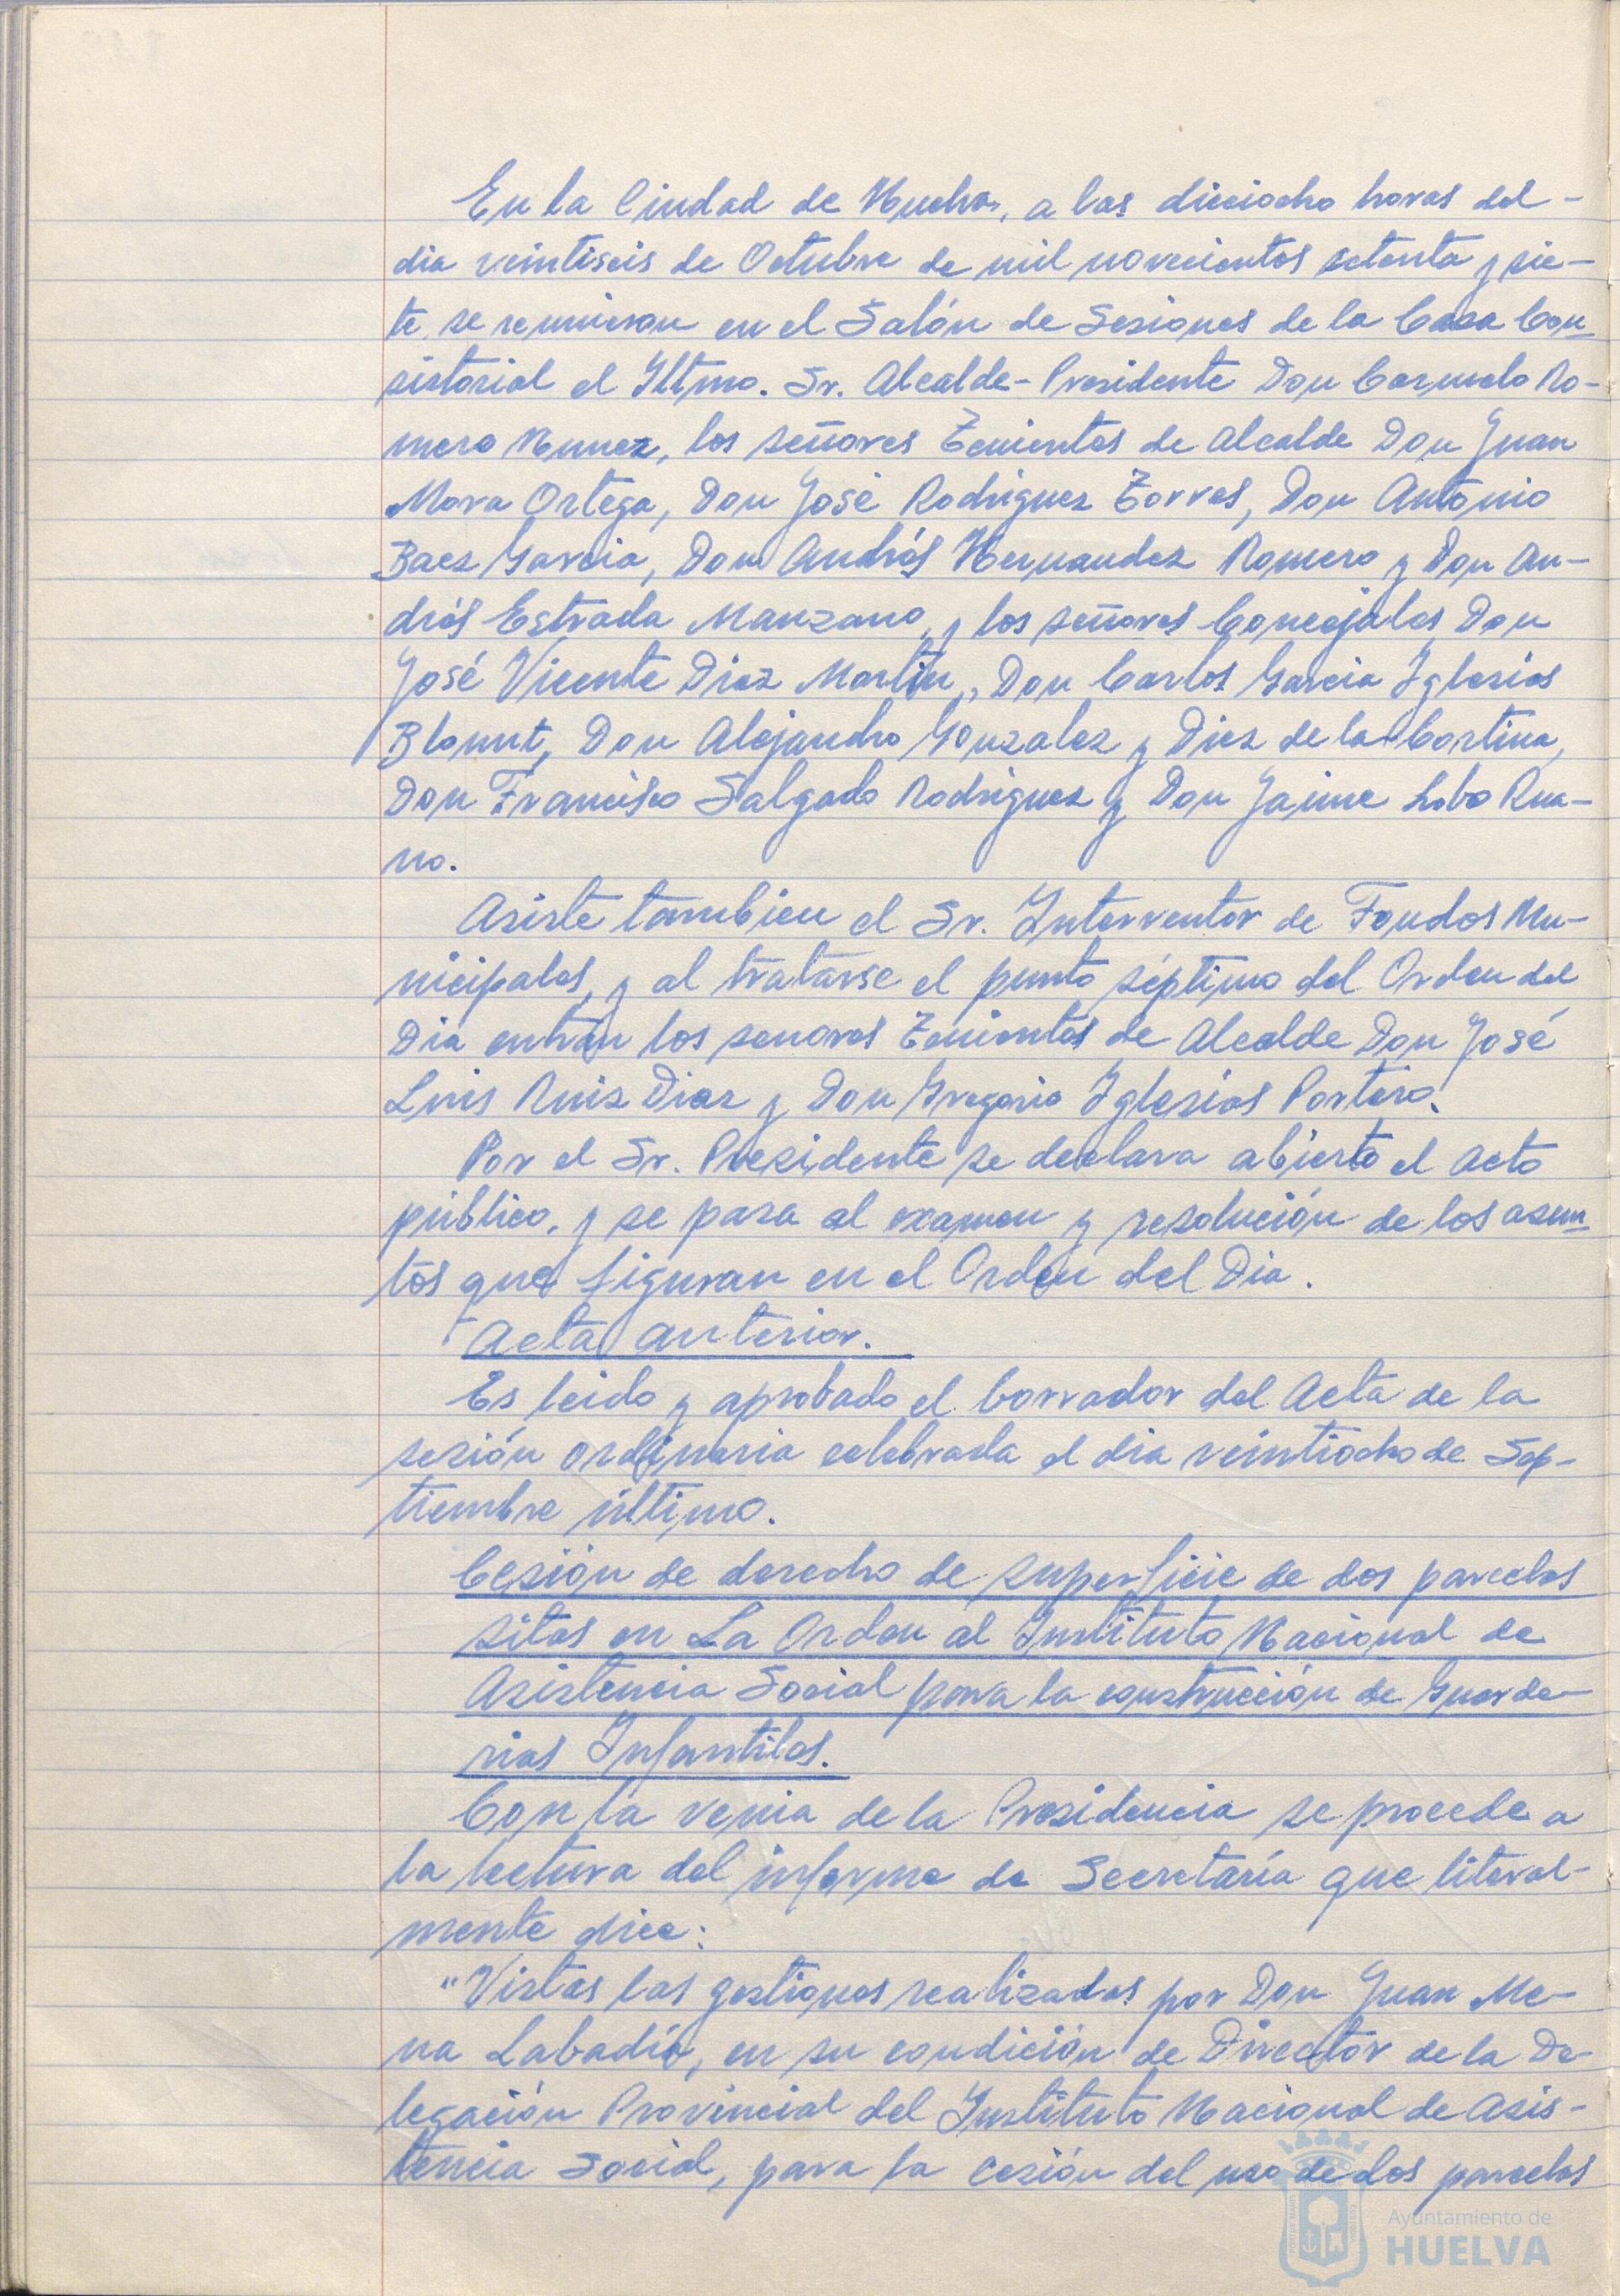 En la Ciudad de Huelva, a las dieciocho horas del -
dia veintiseis de Octubre de mil novecientos setenta y sie-
te, se reunieron en el Salón de Sesiones de la Casa Con-
sistorial el Iltmo. Sr. Alcalde-Presidente Don Carmelo Ro-
mero Nunez, los señores Tenientes de Alcalde Don Juan
Mora Ortega, Don José Rodriguez Torres, Don Antonio
Baez Garcia, Don Andrés Hernandez Romero y Don An-
drés Estrada Manzano, y los señores Concejales Don
José Vicente Diaz Martin, Don Carlos Garcia Iglesias
Blount, Don Alejandro Gonzalez y Diez de la Cortina,
Don Francisco Salgado Rodriguez y Don Jaime Lobo Rua-
no.
Asiste tambien el Sr. Interventor de Fondos Mu-
nicipales, y al tratarse el punto séptimo del Orden del
Dia entran los senores Tenientes de Alcalde Don José
Luis Ruiz Diaz y Don Gregorio Iglesias Portero.
Por el Sr. Presidente se declara abierto el Acto
público, y se pasa al examen y resolución de los asun-
tos que figuran en el Orden del Dia.
Acta anterior.
Es leido y aprobado el borrador del Acta de la
sesión ordinaria celebrada el dia veintiocho de Sep-
tiembre último.
Cesión de derecho de superficie de dos parcelas
sitas en La Orden al Instituto Nacional de
Asistencia Social para la construcción de Guarde-
rias Infantiles.
Con la venia de la Presidencia se procede a
la lectura del informe de Secretaría que literal-
mente dice:
"Vistas las gestiones realizadas por Don Juan Me-
na Labadía, en su condición de Director de la De-
legación Provincial del Instituto Nacional de Asis-
tencia Social, para la cesión del uso de dos parcelas
Ayuntamiento de
HUELVA